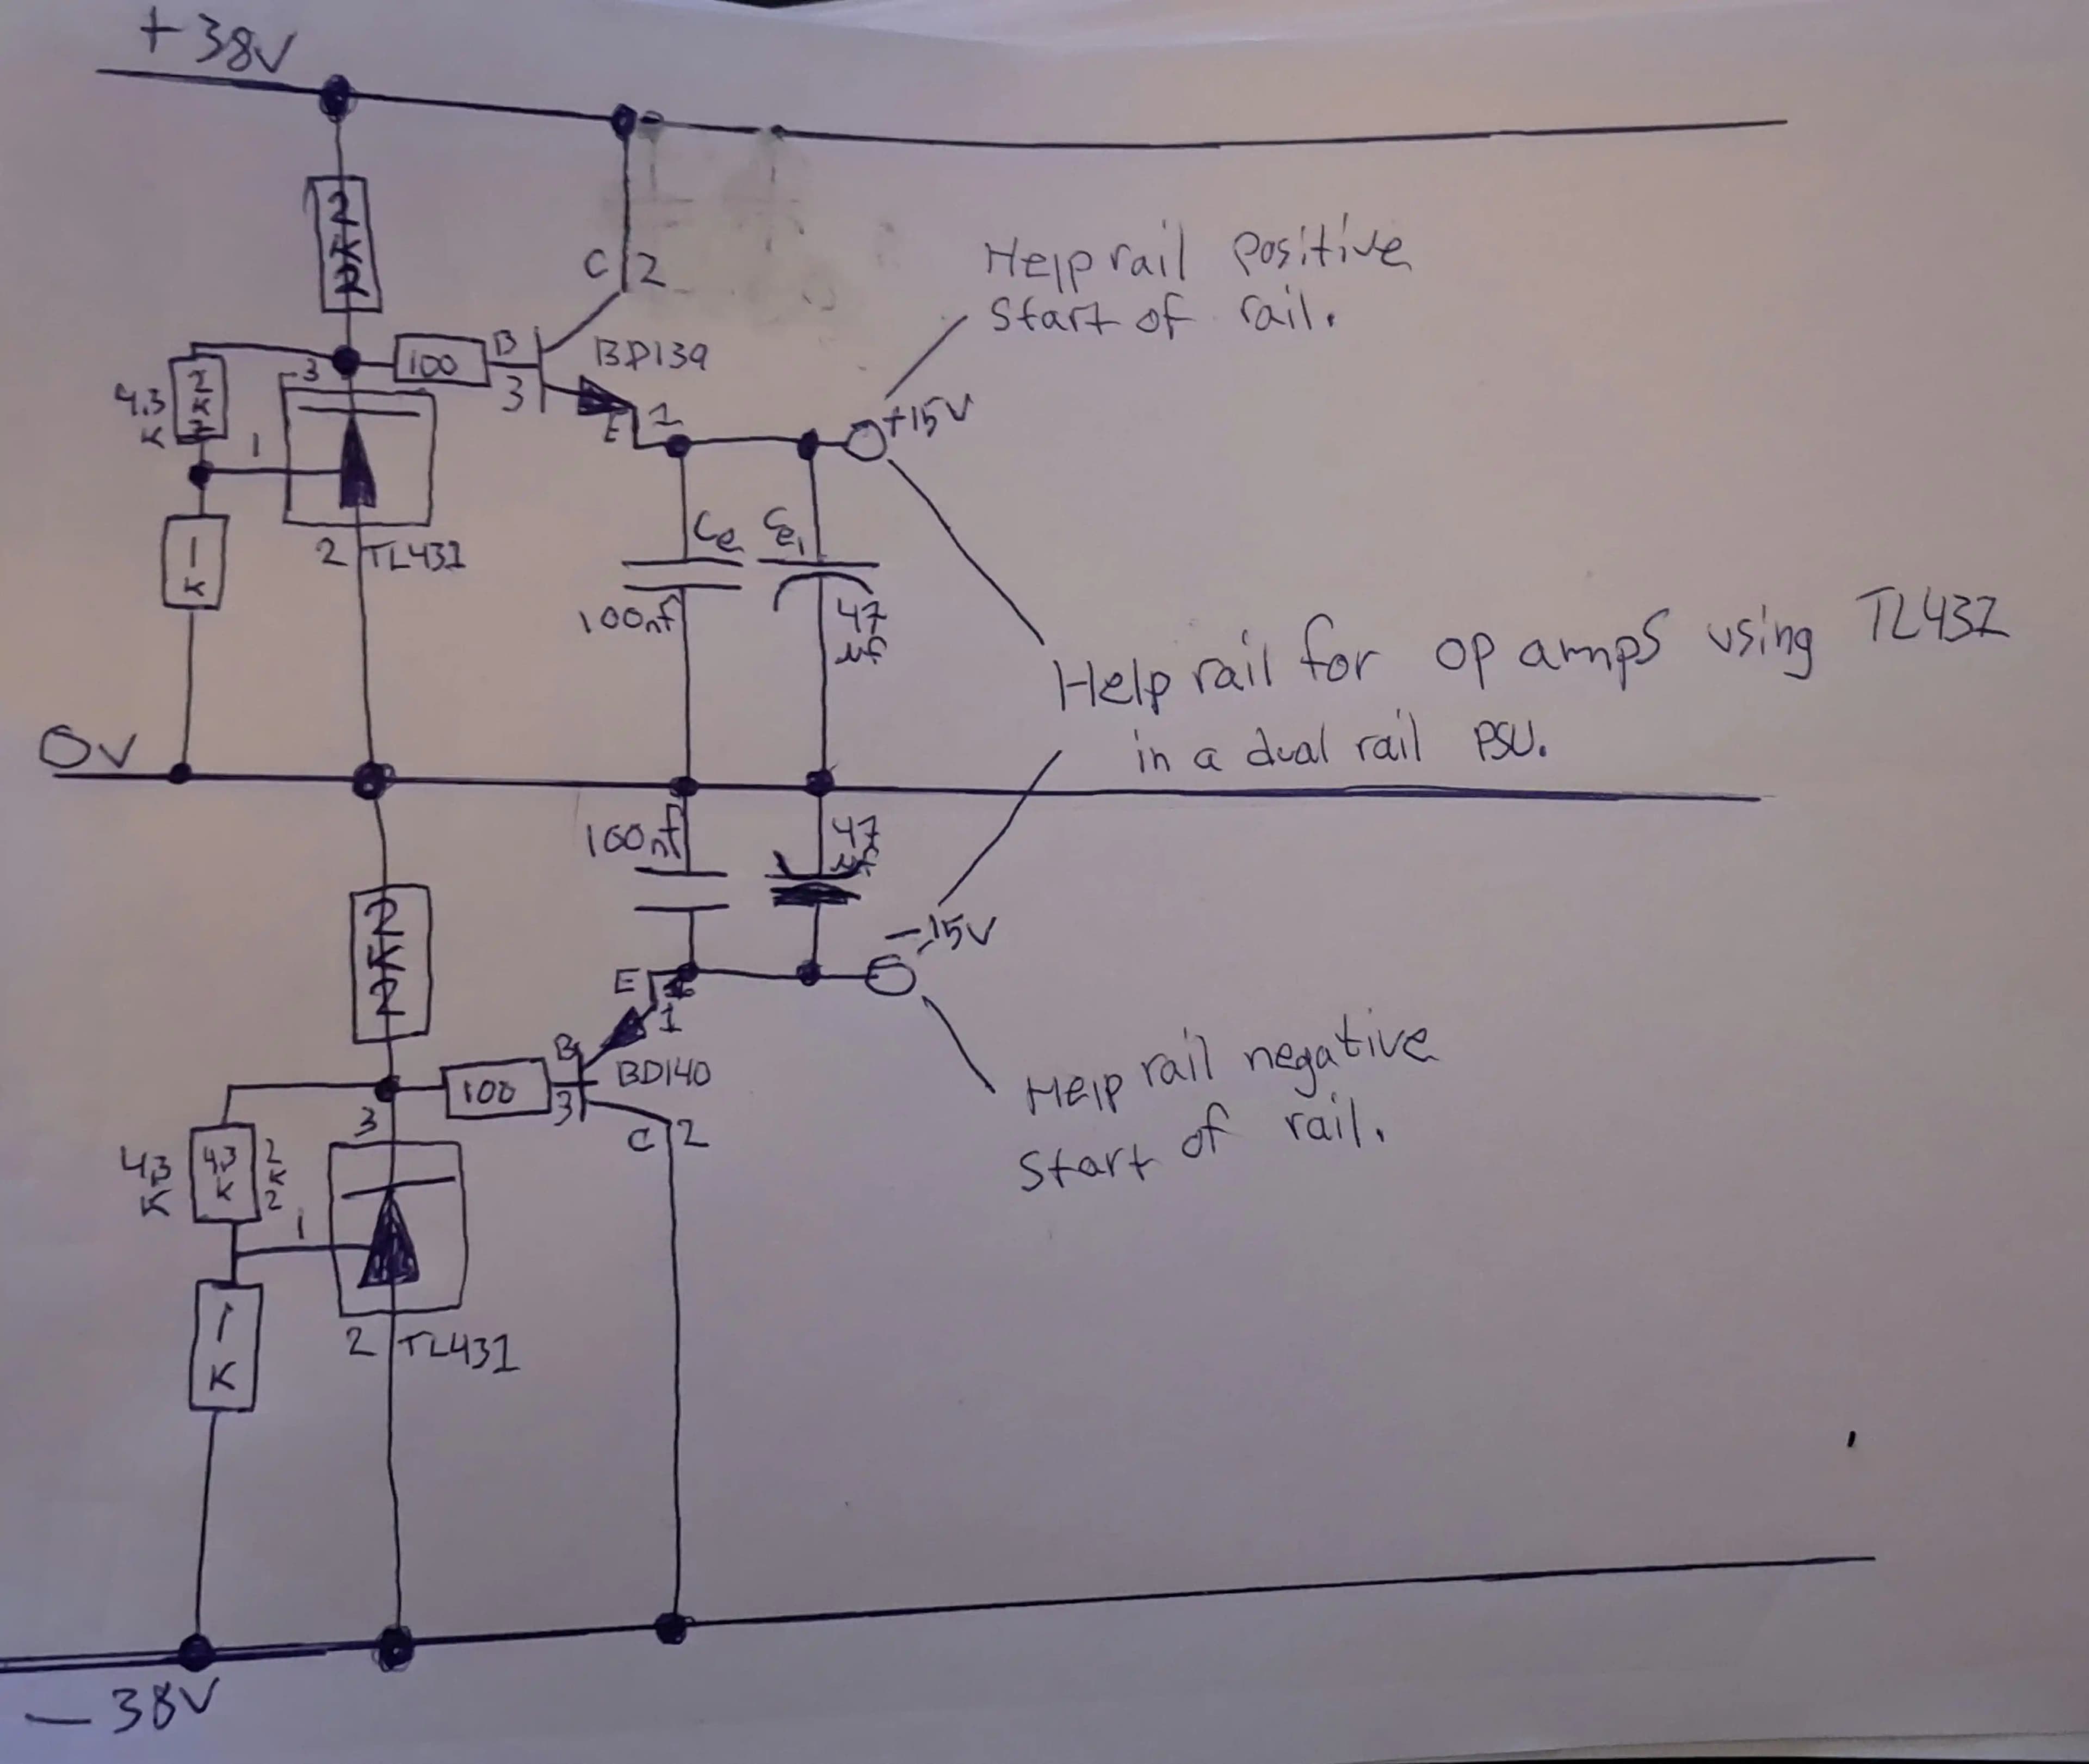 +38V
2
K
2
C 2
Help rail positive
Start of rail.
3
100
B
3
BD139
4.3
K
2
K
2
1
E 1
+15V
1
K
2 TL431
Ce
100nf
47
µf
Help rail for op amps using TL431
in a dual rail PSU.
0V
100nf
47
µf
-15V
2
K
2
E
1
B
100
3
BD140
3
C 2
Help rail negative
Start of rail.
43
K
4.3
K
2
K
2
1
1
K
2 TL431
-38V